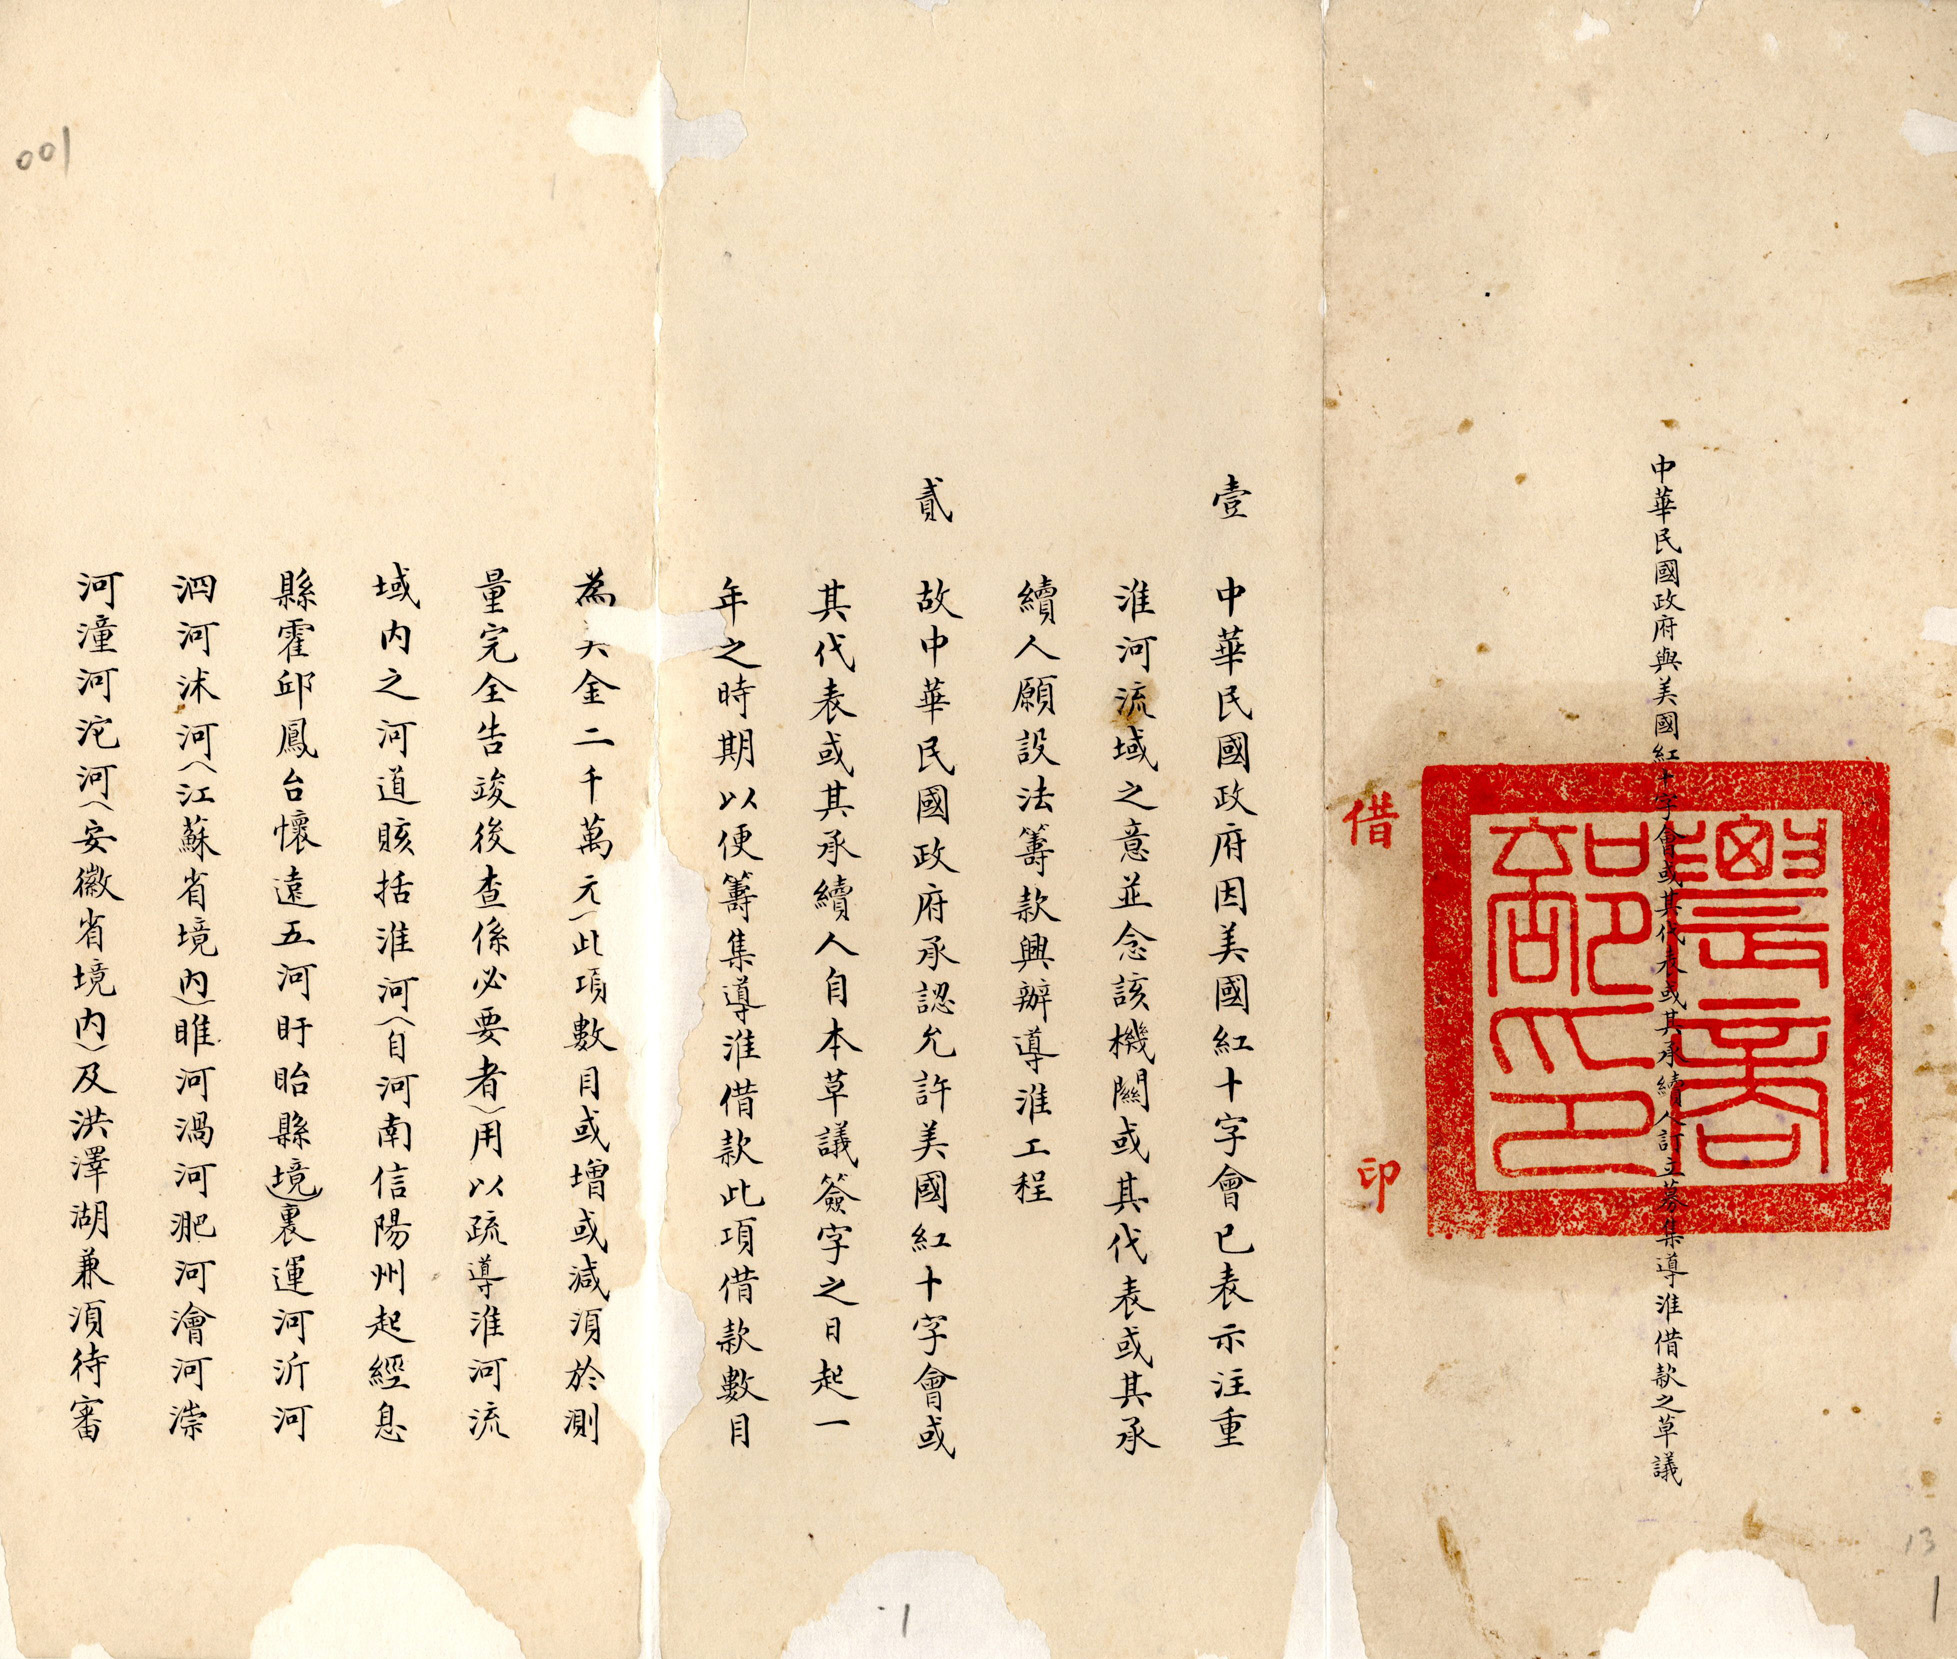 中華民國政府與美國紅十字會或其代表或其承續人訂立募集導淮借款之草議
農商部印
借印
壹 中華民國政府因美國紅十字會已表示注重
淮河流域之意並念該機關或其代表或其承
續人願設法籌款興辦導淮工程
貳 故中華民國政府承認允許美國紅十字會或
其代表或其承續人自本草議簽字之日起一
年之時期以便籌集導淮借款此項借款數目
為美金二千萬元(此項數目或增或減須於測
量完全告竣後查係必要者)用以疏導淮河流
域內之河道賅括淮河(自河南信陽州起經息
縣霍邱鳳台懷遠五河盱眙縣境)裏運河沂河
泗河沭河(江蘇省境內)睢河渦河淝河澮河漴
河潼河沱河(安徽省境內)及洪澤湖兼須待審
001
1
13
1